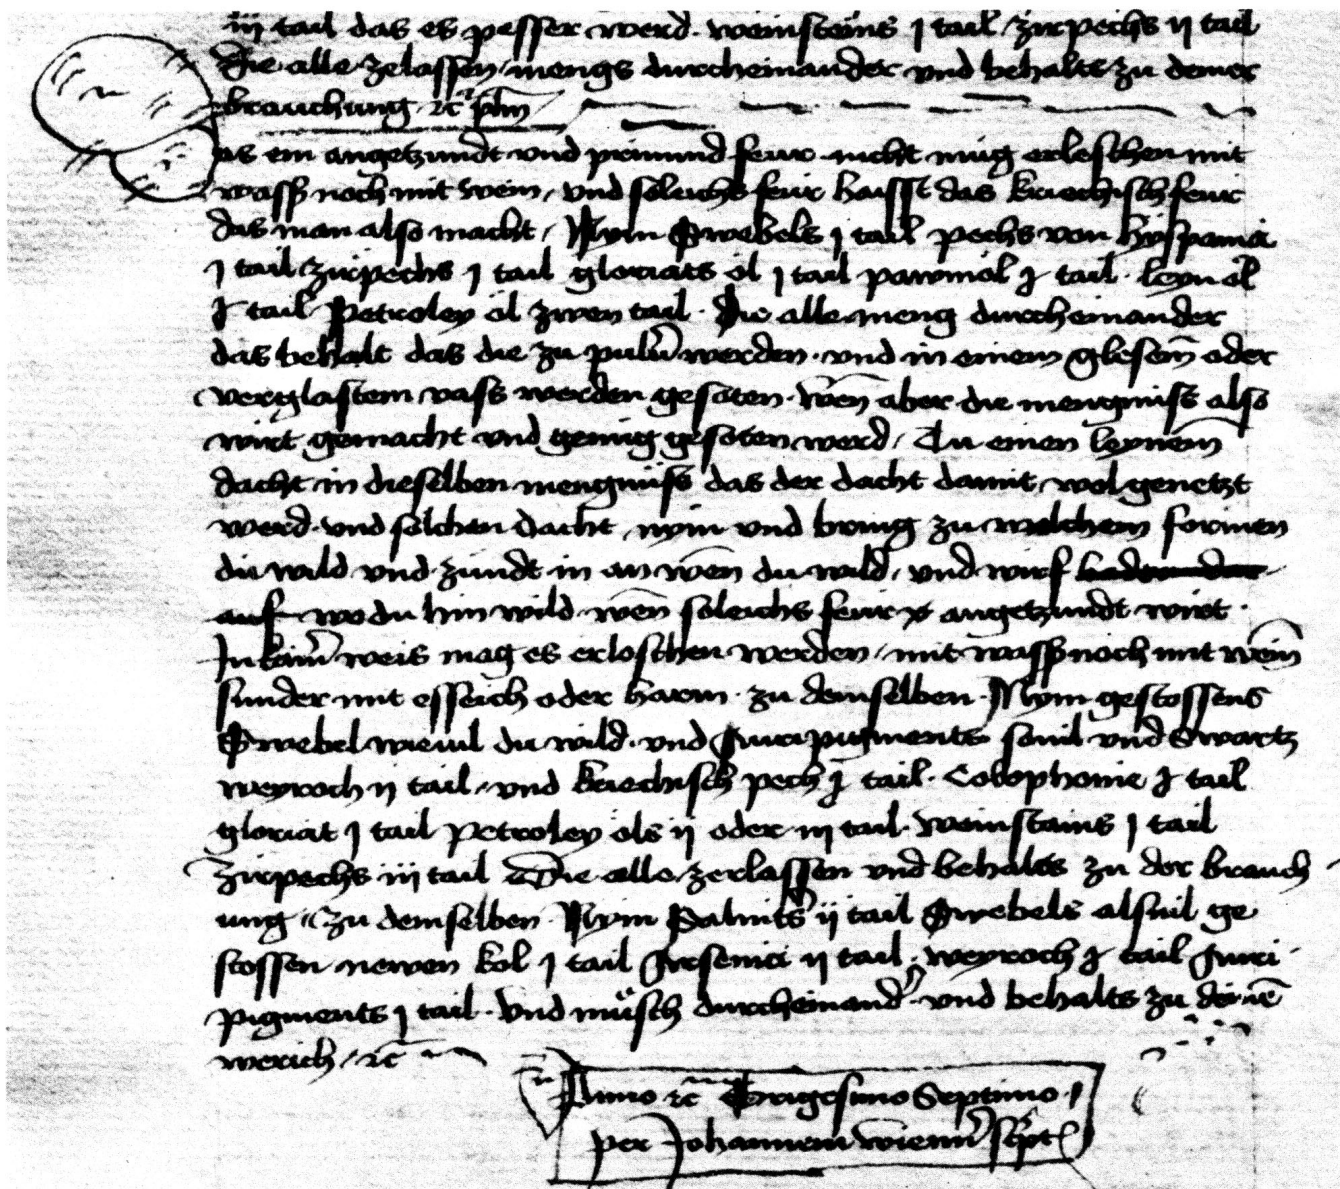 iij tail das es pesser werd · weinsteins j tail zirpechs ij tail
die alle zelassen mengs durcheinander vnd behalts zu deiner
brauchung ꝛc
as ein angetzundt vnd prinnund feur nicht mug erleschen mit
wasser noch mit wein / vnd solichs feur haisst das kriechisch feur
das man also macht / Nym Swebels j tail pechs von hyspania
j tail zirpechs j tail gloriats öl j tail pawmöl j tail · leynöl
j tail Petroley öl zwen tail · Die alle meng durcheinander
das behalt das die zu puluer werden · vnd in einem glesem̄ oder
verglastem vass werden gesoten · wen̄ aber die mengnuss also
wirt gemacht vnd genug gesoten werd / Tu einen leynem̄
dacht in dieselben mengnuss das der dacht damit wol genetzt
werd · vnd solchen dacht nym vnd bring zu welchem formen
du wild vnd zundt in an wen̄ du wild / vnd wirf
auf wo du hin wild wen̄ soleichs feur angetzundt wirt ·
In kainer weis mag es erloschen werden / mit wasser noch mit wein̄
sunder mit esseich oder harm · zu demselben · Nym gestossens
Swebel wieuil du wild · vnd Auripigments souil vnd Swartz
weyroch ij tail / vnd kriechisch pech j tail · Colophonie j tail
gloriat j tail Petroley öls ij oder iij tail · weinstains j tail
Zirpechs iij tail Die alle zerlassen vnd behalts zu der brauch
ung / Zu demselben · Nym Salniters ij tail Swebels alsuil ge
stossen newen kol j tail Arsenici ij tail · weyroch j tail Auri
pigments j tail · vnd müsch durcheinander · vnd behalts zu
werich / ꝛc
Anno ꝛc Tricesimo Septimo /
per Johannem wienner script